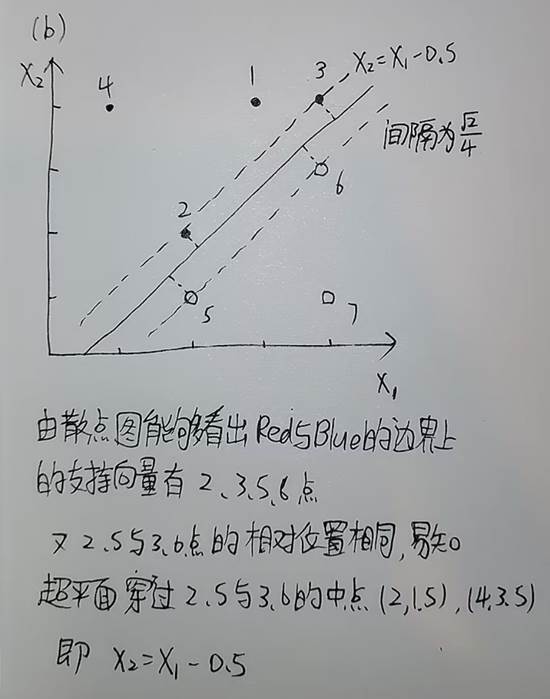 (b)
X₂
4
1
3
X₂=X₁-0.5
间隔为√2/4
6
2
5
7
X₁
由散点图能够看出Red与Blue的边界上
的支持向量有 2、3、5、6点
又 2.5与3.6点的相对位置相同,易知
超平面穿过 2.5与3.6的中点 (2,1.5), (4,3.5)
即 X₂=X₁-0.5